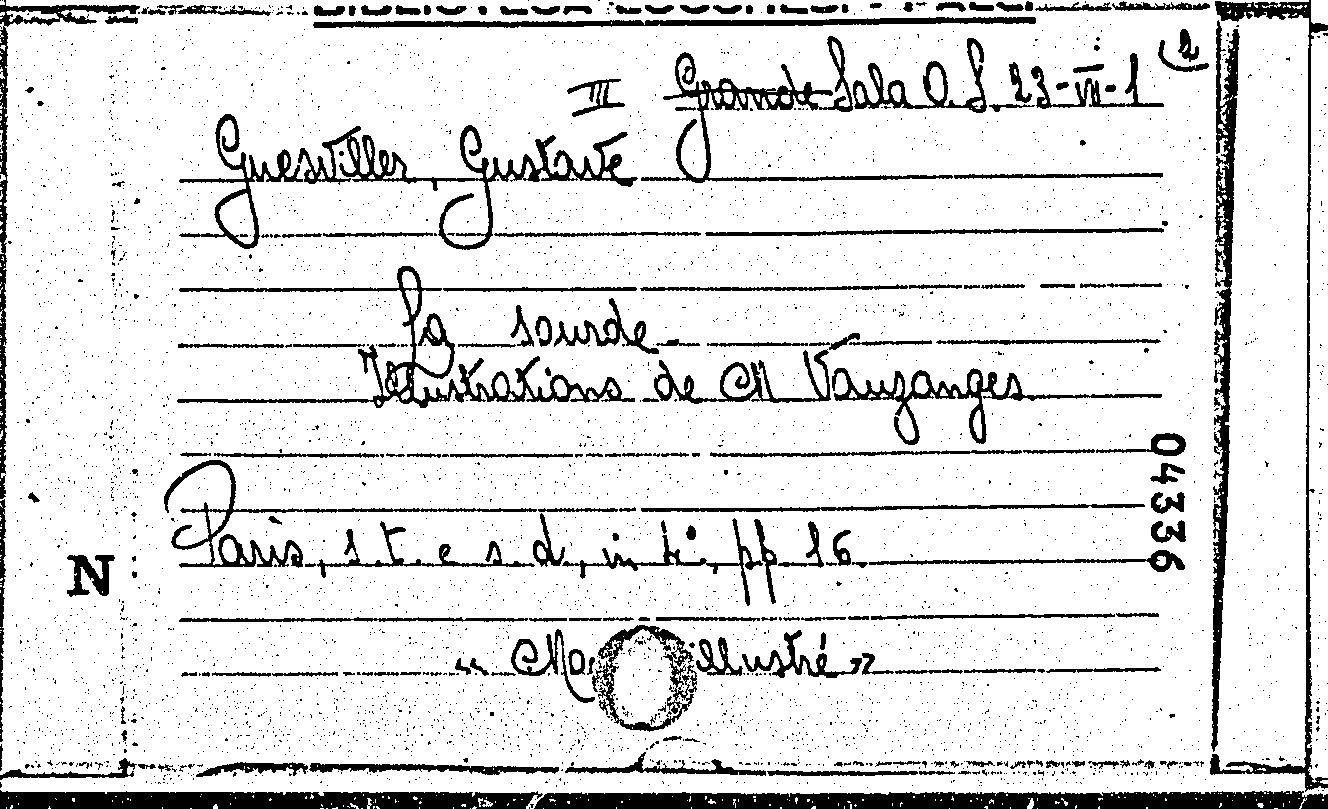 III Grande Sala O. S. 23-III-1 (2
Guesviller, Gustave
La sourde -
Illustrations de M Vauzanges
Paris, s.t. e s.d., in 4°, pp. 16.
« illustré »
N
04336